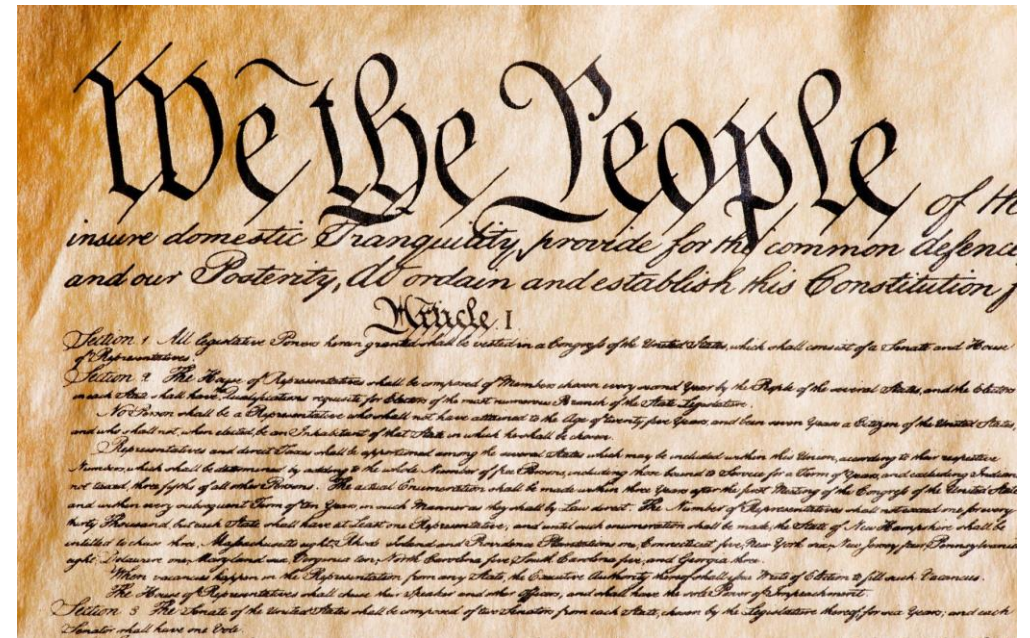 We the People of the
insure domestic Tranquility, provide for the common defence
and our Posterity, do ordain and establish this Constitution f
Article. I.
Section 1. All legislative Powers herein granted shall be vested in a Congress of the United States, which shall consist of a Senate and House
of Representatives.
Section 2. The House of Representatives shall be composed of Members chosen every second Year by the People of the several States, and the Electors
in each State shall have the Qualifications requisite for Electors of the most numerous Branch of the State Legislature.
No Person shall be a Representative who shall not have attained to the Age of twenty five Years, and been seven Years a Citizen of the United States,
and who shall not, when elected, be an Inhabitant of that State in which he shall be chosen.
Representatives and direct Taxes shall be apportioned among the several States which may be included within this Union, according to their respective
Numbers, which shall be determined by adding to the whole Number of free Persons, including those bound to Service for a Term of Years, and excluding Indians
not taxed, three fifths of all other Persons. The actual Enumeration shall be made within three Years after the first Meeting of the Congress of the United States
and within every subsequent Term of ten Years, in such Manner as they shall by Law direct. The Number of Representatives shall not exceed one for every
thirty Thousand, but each State shall have at Least one Representative; and until such enumeration shall be made, the State of New Hampshire shall be
entitled to chuse three, Massachusetts eight, Rhode Island and Providence Plantations one, Connecticut five, New York six, New Jersey four, Pennsylvania
eight, Delaware one, Maryland six, Virginia ten, North Carolina five, South Carolina five, and Georgia three.
When vacancies happen in the Representation from any State, the Executive Authority thereof shall issue Writs of Election to fill such Vacancies.
The House of Representatives shall chuse their Speaker and other Officers; and shall have the sole Power of Impeachment.
Section 3. The Senate of the United States shall be composed of two Senators from each State, chosen by the Legislature thereof, for six Years; and each
Senator shall have one Vote.